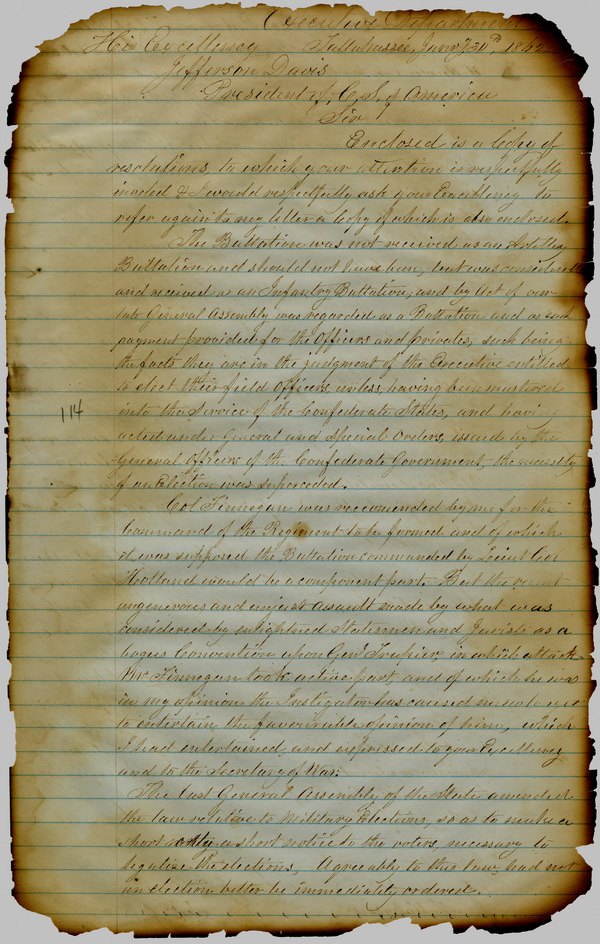 Executive Department
His Excellency Tallahassee, Jany 30th, 1862
Jefferson Davis
President of C. S. of America
Sir
Enclosed is a Copy of
resolutions, to which your attention is respectfully
invited & I would respectfully ask your Excellency to
refer again to my letter a Copy of which is also enclosed.
The Battalion was not received as an Artillery
Battalion and should not have been, but was considered
and received as an Infantry Battalion, and by Act of our
late General Assembly was regarded as a Battalion and as such
payment provided for the Officers and Privates, such being
the facts they are in the judgment of the Executive entitled
to elect their field Officers, unless, having been mustered
into the Service of the Confederate States, and having
acted under General and Special Orders, issued by the
General Officers of the Confederate Government, the necessity
of an Election was superceded.
114
Col Finnegan was recommended by me for the
Command of the Regiment to be formed and of which
it was supposed the Battalion commanded by Lieut Col
Holland would be a component part. But the recent
ungenerous and unjust assault made by what was
considered by enlightned Statesmen and Jurists as a
bogus Convention upon Genl Trapier in which attack
Mr Finnegan took active part, and of which he was
in my opinion the Instigator has caused me to
to entertain the favourable opinion of him, which
I had entertained and expressed to your Excellency
and to the Secretary of War.
The last General Assembly of the State amended
the law relative to Military Elections, so as to make a
short a short notice to the voters, necessary to
legalize the elections, Agreeably to this law, had not
an election better be immediately ordered.